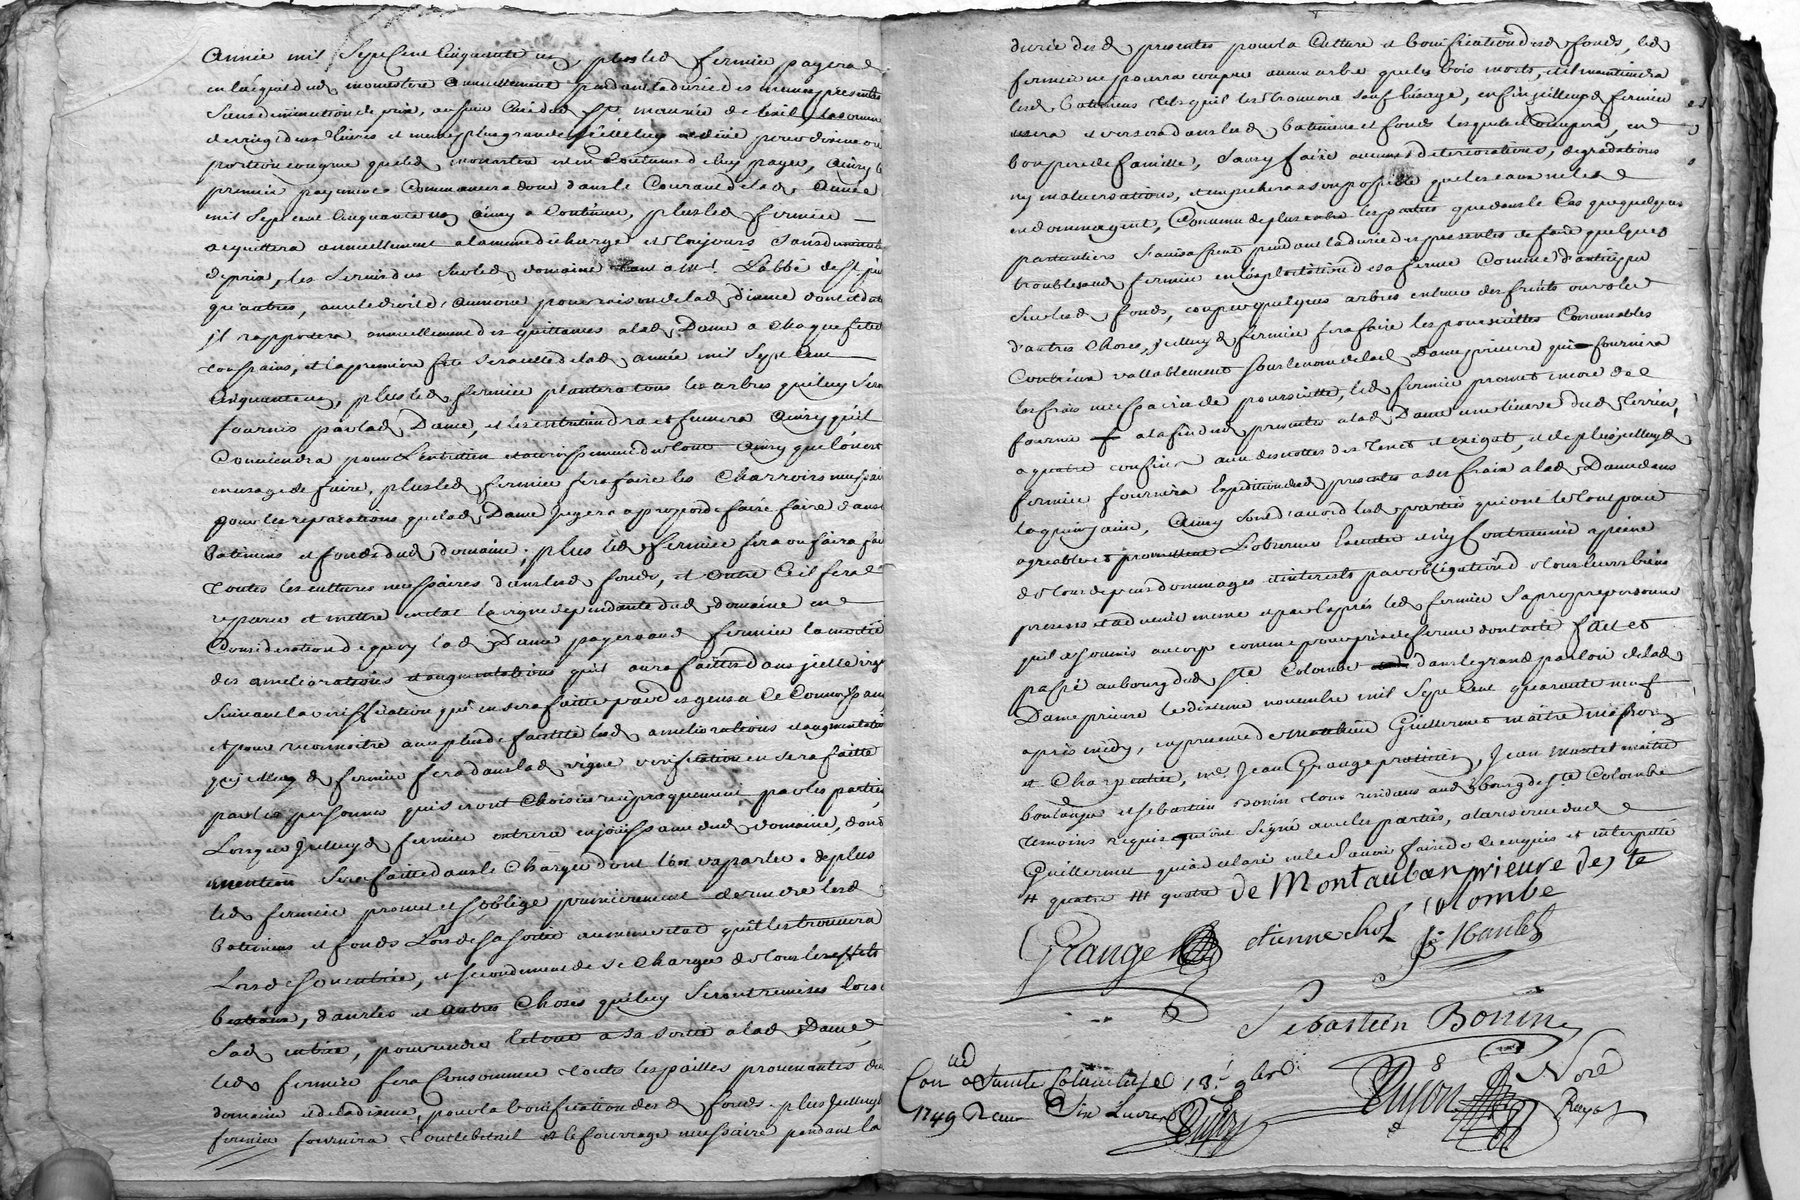 Année mil Sept Cent Cinquante un, plus led fermier payera
en l'acquit dud monastere annuellement pendant la durée des mesmes presentes
Sans diminution de prix, au Sieur Curé dud St maurice de la somme
de vingt deux livres et mesme plus grande
portion congrue que led monastere est en Coutume de luy payer, Ainsy le
premier payement Commancera donc dans le Courant de lad Année
mil Sept cent Cinquante un Ainsy a Continuer, plus led fermier
acquittera annuellement a la mme décharge et toujours Sans diminution
de prix, les Servis dus Sur led domaine tant a Mr L'abbé de St
qu'autres, avec le droit d'aumone pour raison de lad disme dont et du tout
jl rapportera annuellement des quittances a lad Dame a Chaque fete de
toussaints, et la premiere fete Sera celle de lad année mil Sept Cent
Cinquante un, plus led fermier plantera tous les arbres qui luy Seront
fournis par lad Dame, et les entretiendra et fumera Ainsy qu'il
Conviendra pour L'entretien et accroissement du tout Ainsy que lon est
en usage de faire, plus led fermier fera faire les Charroirs necessaires
pour les reparations que lad Dame Jugera a propos de faire faire dans les
batimens et fonds dud domaine, plus led fermier fera ou faira faire
toutes les cultures necessaires dans lesd fonds, et outre Ce il fera
reparer et mettre en etat la vigne dependante dud domaine en
Consideration de quoy lad Dame payera aud fermier la moitié
des ameliorations et augmentations qu'il aura faittes dans jcelle vigne
Suivant la verification qui en sera faitte par des gens a Ce Connoissans
et pour reconnoitre avec plus de facilité lesd ameliorations et augmentations
que jcelluy d fermier fera dans lad vigne verification en sera faitte
par les personnes qui Seront Choisies reciproquement par les parties,
Lorsque Jcelluy d fermier entrera en jouissance dud domaine, dont
mention Sera faitte dans le Chargé dont l'on va parler. de plus
led fermier promet et s'oblige premierement de rendre lesd
batimens et fonds Lors de Sa Sortie au mme etat qu'il les trouvera
Lors de Son entrée, et secondement de Se Charger de tous les effets
bestiaux, danrées et autres Choses qui luy Seront remises lors de
Sad entrée, pour rendre le tout a Sa Sortie a lad Dame,
led fermier fera Consommer toutes les pailles provenantes dud
domaine et de la disme, pour la bonification des d fonds. plus Jcelluy d
fermier fournira tout le betail et le fourrage necessaire pendant la
durée des d presentes pour la Culture et bonification desd fonds, led
fermier ne pourra couper aucun arbre que les bois morts, et il maintiendra
lesd batimens tels qu'il les trouvera Sauf l'usage, enfin jcelluy d fermier
usera et versera dans lesd batimens et fonds lesquels il occupera, en
bon pere de famille, Sans y faire aucunes deteriorations, degradations
ny malversations, et empechera a son possible que les eaux ne les
endommagent, Convenu de plus entre les parties que dans le Cas que quelques
particuliers s'avisassent pendant la durée des presentes de faire quelques
troubles aud fermier en l'exploitation de sa ferme Comme d'anticiper
Sur lesd fonds, couper quelques arbres enlever des fruits ou voler
d'autres Choses, jcelluy d fermier fera faire les poursuittes Convenables
Contr'eux vallablement Sous le nom de lad Dame prieure qui fournira
les frais necessaires de poursuitte, led fermier promet encore de
fournir a la fin dud presentes a lad Dame une lieve dud terrier,
a quatre confins avec des nottes des tenets et exigat, et de plus jcelluy d
fermier fournira Expedition desd presentes a ses frais a lad Dame dans
la quinzaine, Ainsy Sont d'accord lesd parties qui ont le tout pour
agreable et promettent L'observer Executer et n'y Contrevenir a peine
de tous depens dommages et interests par obligation de tous leurs biens
presens et advenir meme et par exprés led fermier Sa propre personne
qu'il a Soumis au corp comme pour prix de ferme dont acte fait et
passé au bourg dud Ste Colombe dans le grand parloir de lad
Dame prieure le dixieme novembre mil Sept Cent quarante neuf
aprés midy, en presence de Guillermet maitre masson
et Charpentier, me Jean Grange praticien, Jean Martel maitre
boulanger et Sebastien Bonin tous residans aud Bourg de Ste Colombe
temoins requis qui ont Signé avec les parties, a la reserve dud
Guillermet qui a declaré ne le Savoir faire de ce enquis et interpellé
# quatre ## quatre de Montauban prieure de ste
Colombe
Grange etienne chol Jn Martel
Sebastien Bonin
Dujon Nore
Royal
Con lé a Sainte Colombe le 13e 9bre
1749 Reçu Six Livres Dujon